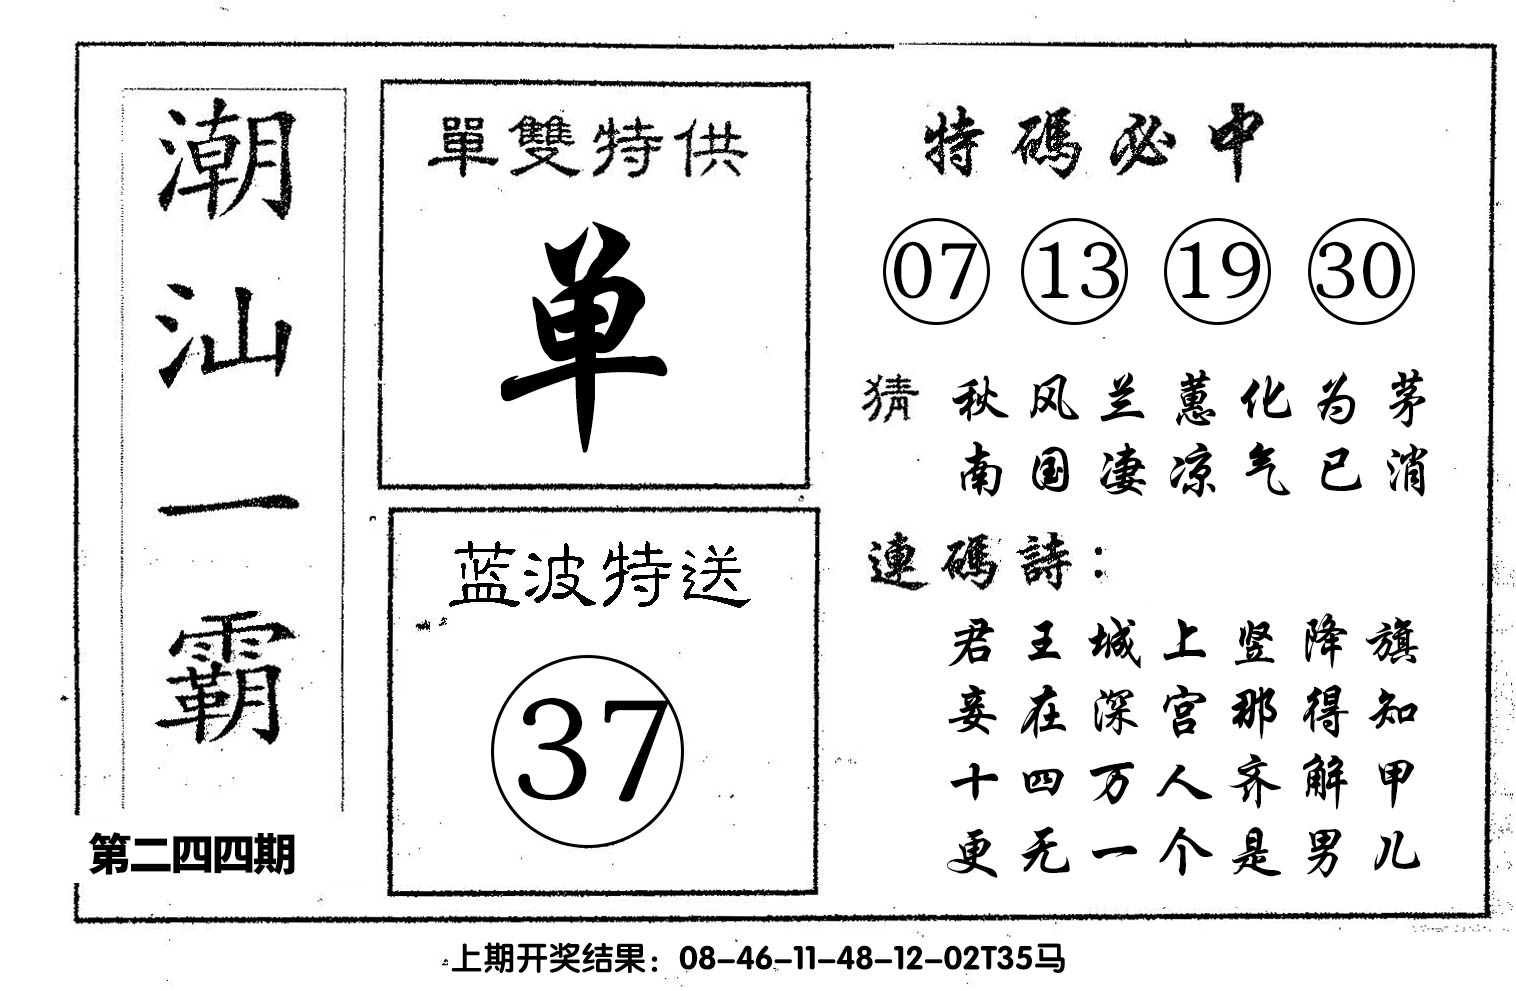 潮汕一霸
第二四四期
單雙特供
单
蓝波特送
37
特碼必中
07 13 19 30
猜 秋风兰蕙化为茅
南国凄凉气已消
連碼詩：
君王城上竖降旗
妾在深宫那得知
十四万人齐解甲
更无一个是男儿
上期开奖结果：08-46-11-48-12-02T35马